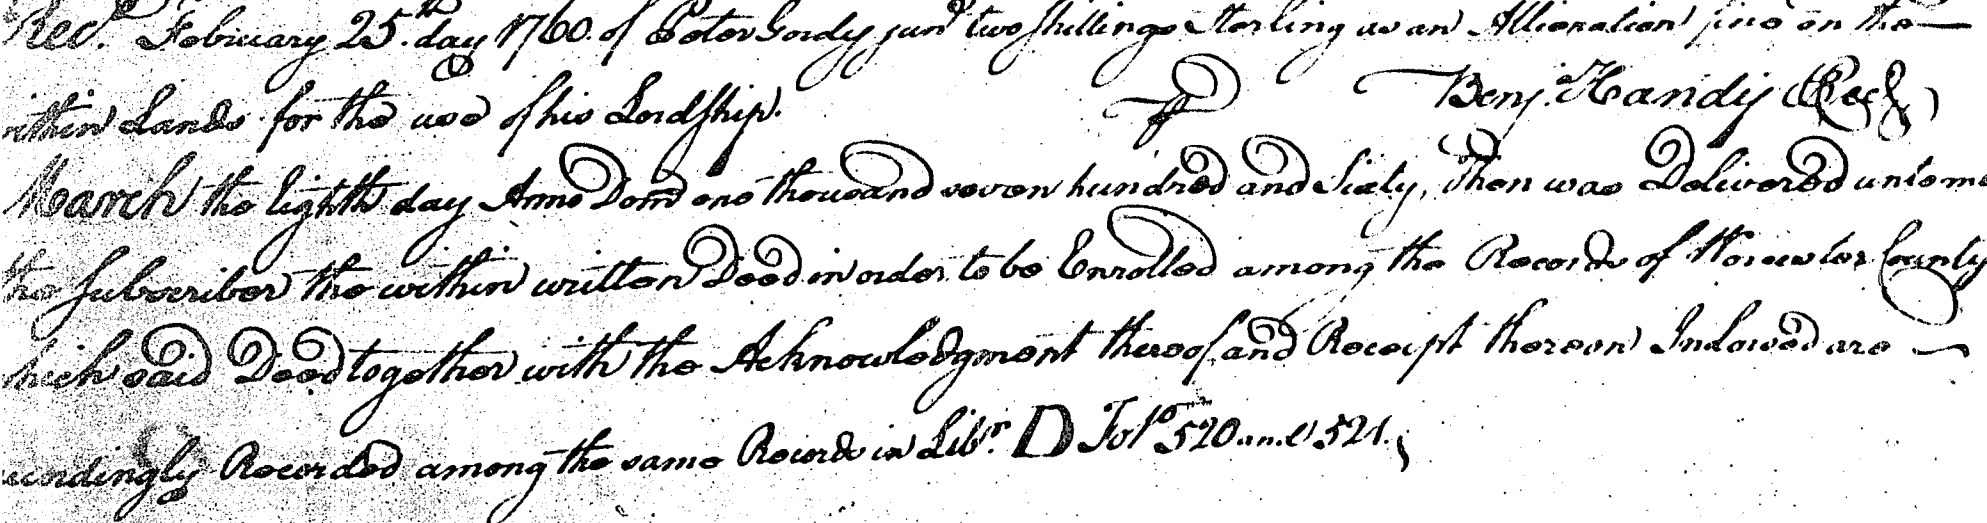 Rec.d February 25.th day 1760. of Peter Gordy jun.r two shillings Sterling as an Allienation fine on the
within Lands for the use of his Lordship. Benj. Handy Rec.r
March the Eighth day Anno Dom one thousand seven hundred and Sixty, Then was Delivered unto me
the Subscriber the within written Deed in order to be Enrolled among the Records of Worcester County
which said Deed together with the Acknowledgment thereof and Receipt thereon Indorsed are
accordingly Recorded among the same Records in Lib.r D Fol.o 520 and 521.